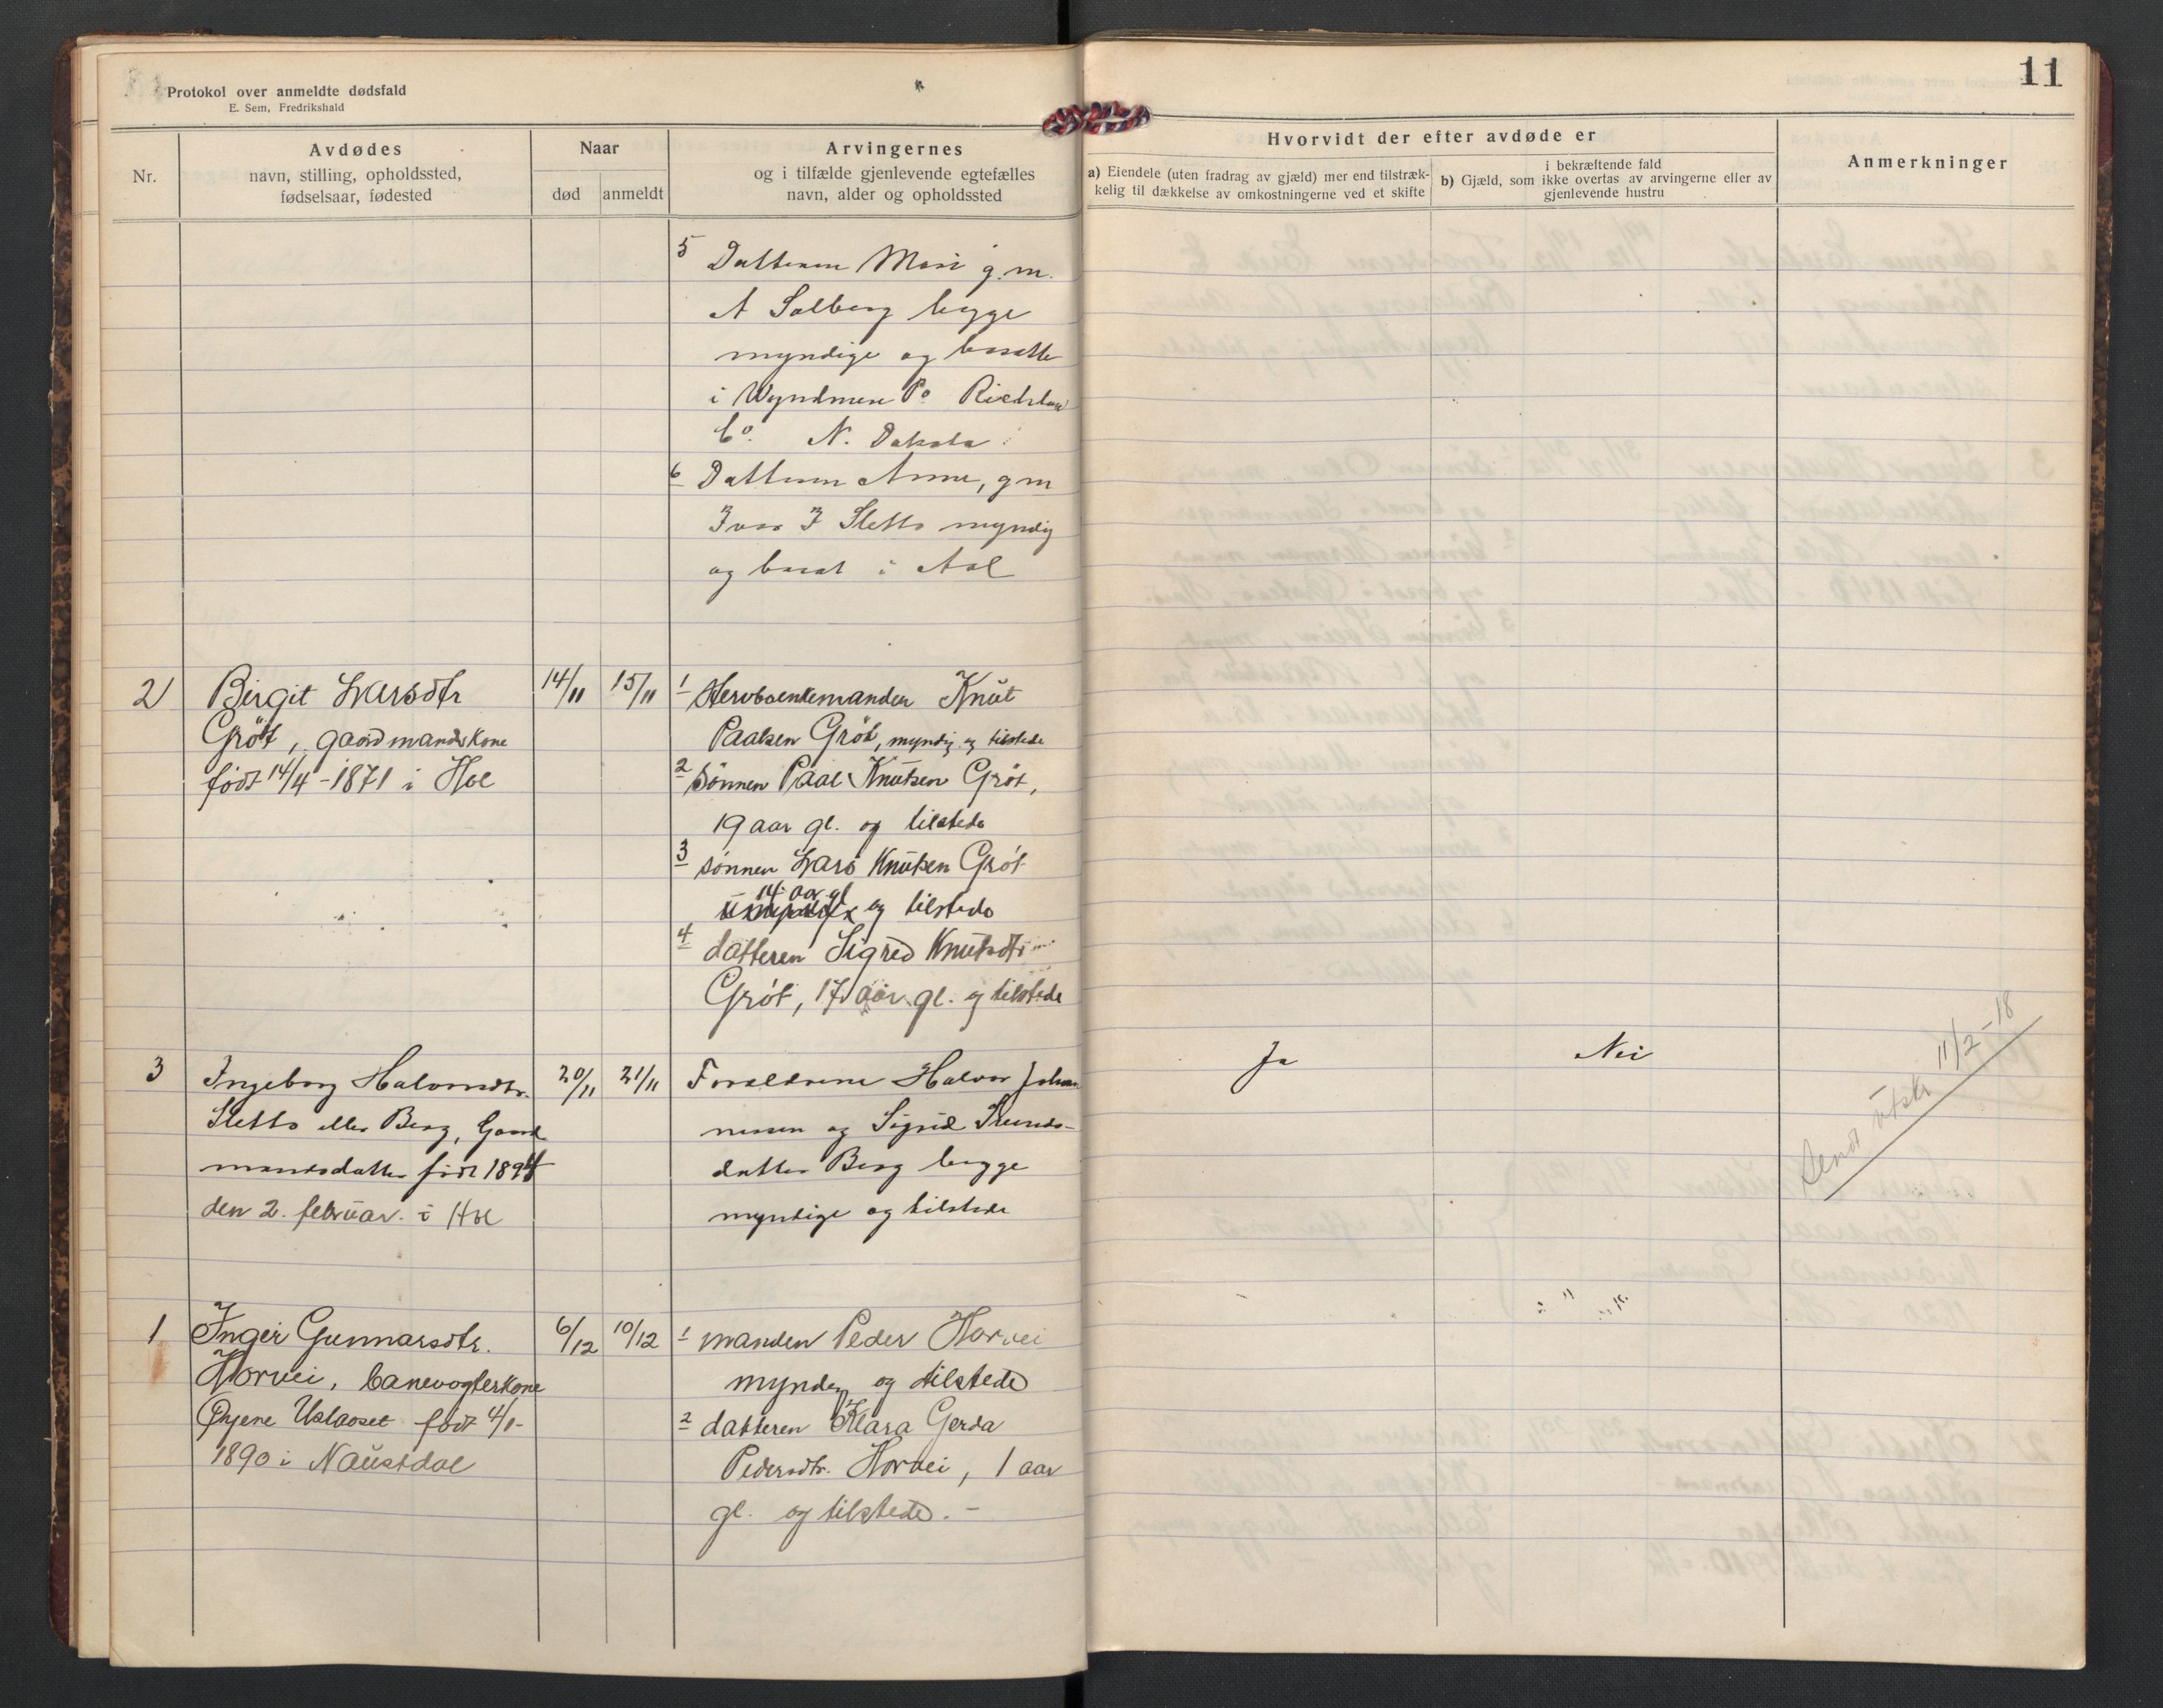 Protokol over anmeldte dødsfald
E. Sem, Fredrikshald
Nr.
Avdødes
navn, stilling, opholdssted,
fødselsaar, fødested
Naar
død
anmeldt
Arvingernes
og i tilfælde gjenlevende egtefælles
navn, alder og opholdssted
5 Datteren Mari g.m.
A Solberg begge
myndige og bosatte
i Wyndmere Po Richland
Co. N. Dakota
6 Datteren Anne, g m
Ivar I Sletto myndig
og bosat i Aal
2 Birgit Larsdtr 14/11 15/11 1
Knut
Grøt, gaardmandskone
Paalsen Grøt, myndig og tilstede
født 14/4 - 1871 i Hol
2 Sønnen Paal Knutsen Grøt,
19 aar gl. og tilstede
3 sønnen Lars Knutsen Grøt
14 aar gl
og tilstede
4 datteren Sigrid Knutsdtr
Grøt, 17 aar gl. og tilstede
3 Ingeborg Halvorsdtr. 20/11 21/11 Forældrene Halvor Johan
Sletto eller Berg, Gaard
nessen og Sigrid Svends-
mandsdatter født 1894
datter Berg begge
den 2. februar. i Hol
myndige og tilstede
1 Inger Gunnarsdtr. 6/12 10/12 1 manden Peder Horvei
Horvei, banevogterkone
myndig og tilstede
Øyene Ustaoset født 4/1-
2 datteren Klara Gerda
1890 i Naustdal
Pedersdtr. Horvei, 1 aar
gl. og tilstede. -
11
Hvorvidt der efter avdøde er
a) Eiendele (uten fradrag av gjæld) mer end tilstræk-
kelig til dækkelse av omkostningerne ved et skifte
i bekræftende fald
b) Gjæld, som ikke overtas av arvingerne eller av
gjenlevende hustru
Anmerkninger
Ja
Nei
Sendt utskr 11/2-18